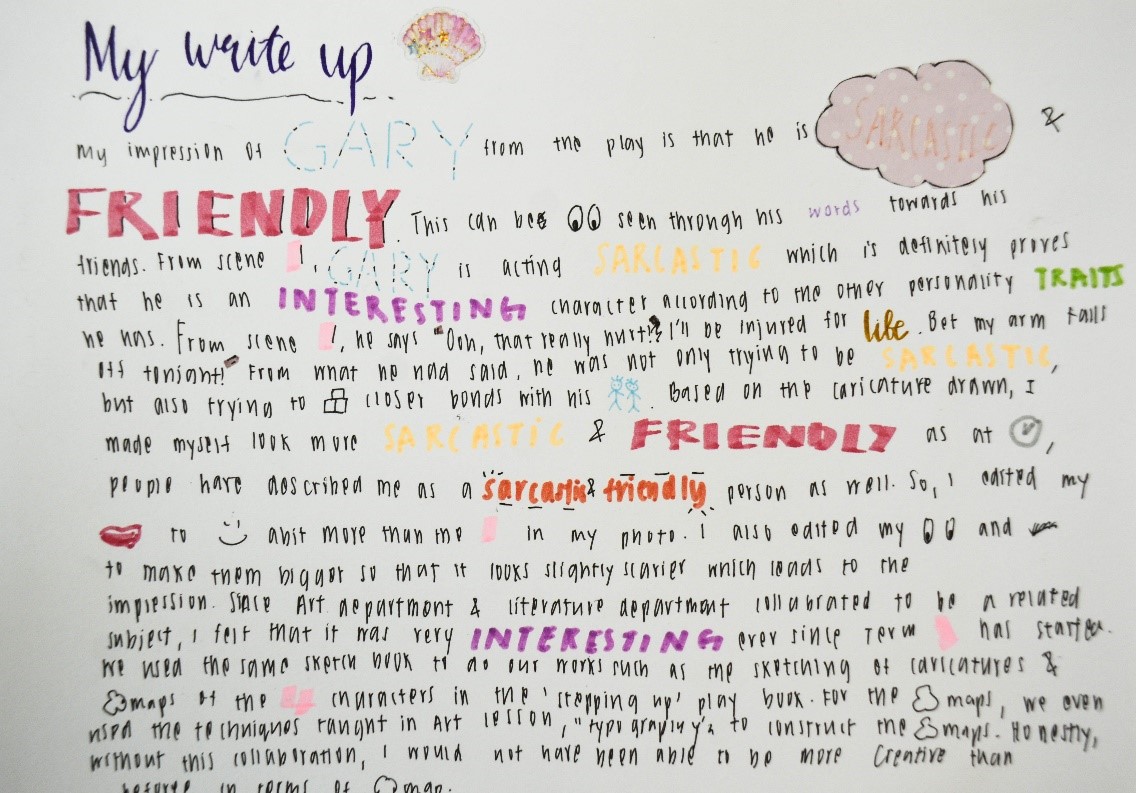 My write up
My impression of GARY from the play is that he is SARCASTIC &
FRIENDLY. This can be seen through his words towards his
friends. From scene 1, GARY is acting SARCASTIC which is definitely proves
that he is an INTERESTING character according to the other personality TRAITS
he has. From scene 1, he says "Ooh, that really hurt!? I'll be injured for life. Bet my arm falls
off tonight!" From what he had said, he was not only trying to be SARCASTIC,
but also trying to closer bonds with his . Based on the caricature drawn, I
made myself look more SARCASTIC & FRIENDLY as at ,
people have described me as a sarcastic & friendly person as well. So, I edited my
to abit more than the in my photo. I also edited my and
to make them bigger so that it looks slightly scarier which leads to the
impression. Since Art department & literature department collabrated to be a related
subject, I felt that it was very INTERESTING ever since Term has started.
We used the same sketch book to do our works such as the sketching of caricatures &
maps of the characters in the 'stepping up' play book. For the maps, we even
used the techniques taught in Art lesson, "typography", to construct the maps. Honestly,
without this collaboration, I would not have been able to be more creative than
before in terms of map.